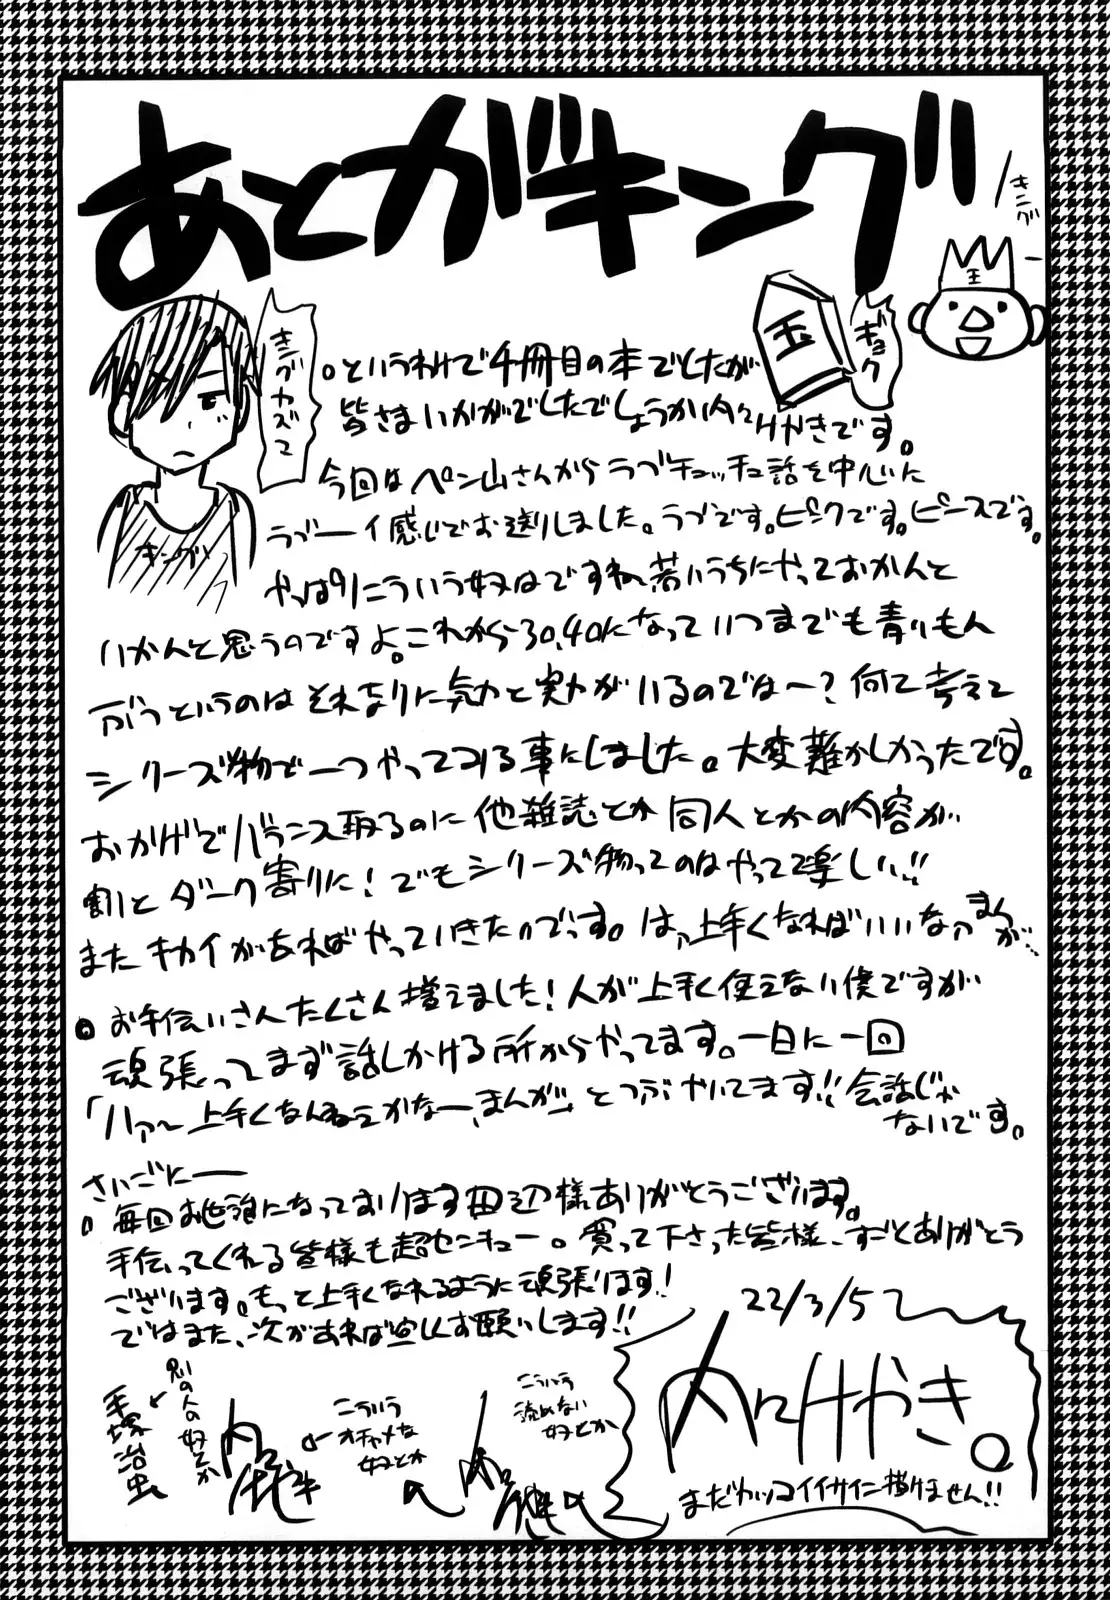 あとがキング
キング
王
玉
ギョク
キングカズて
キング
。というわけで4冊目の本でしたが
皆さまいかがでしたでしょうか内々けやきです。
今回はペン山さんからラブチュッチュ話を中心に
ラブーイ感じでお送りしました。ラブです。ピンクです。ピースです。
やっぱりこういう奴はですね、若いうちにやっておかんと
いかんと思うのですよ。これから30,40になっていつまでも青いもん
ぶつというのはそれなりに気力と実力がいるのではー?何て考えて
シリーズ物で一つやってみる事にしました。大変難かしかったです。
おかげでバランス取るのに他雑誌とか同人とかの内容が
割とダーク寄りに!でもシリーズ物ってのはやってて楽しい!!
またキカイがあればやっていきたいのです。はァ上手くなればいいなァまんが…
。お手伝いさんたくさん増えました!人が上手く使えない僕ですが
頑張ってまず話しかける所からやってます。一日に一回
「ハァ〜上手くなんねえかなー、まんが」とつぶやいてます!!会話じゃ
ないです。
さいごにー
。毎回お世話になっております田辺様ありがとうございます。
手伝ってくれる皆様も超センキュー。買って下さった皆様、すごくありがとう
ございます。もっと上手くなれるように頑張ります!
ではまた、次があれば宜しくお願いします!!
22/3/5
内々けやき。
まだカッコイイサイン描けません!!
こういう
読めない
奴とか
こういう
オチャメな
奴とか
別の人の奴とか
手塚治虫